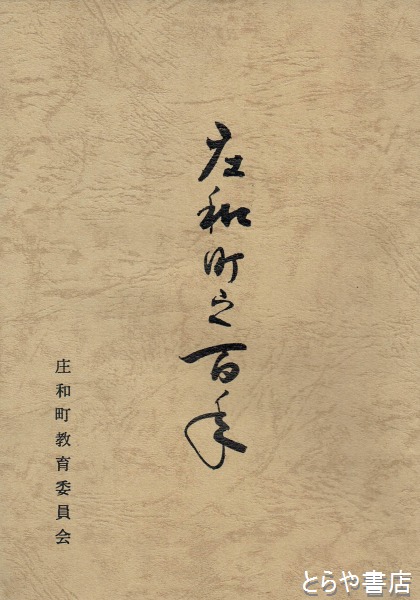 庄和町之百年
庄和町教育委員会
とらや書店